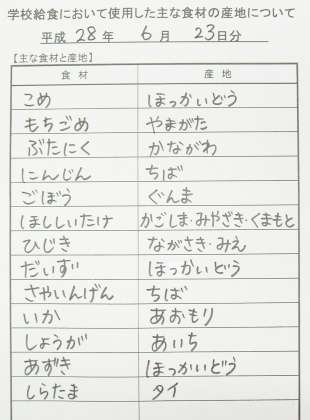 学校給食において使用した主な食材の産地について
平成 28 年 6 月 23日分
【主な食材と産地】
食 材 産 地
こめ ほっかいどう
もちごめ やまがた
ぶたにく かながわ
にんじん ちば
ごぼう ぐんま
ほししいたけ かごしま・みやざき・くまもと
ひじき ながさき・みえ
だいず ほっかいどう
さやいんげん ちば
いか あおもり
しょうが あいち
あずき ほっかいどう
しらたま タイ